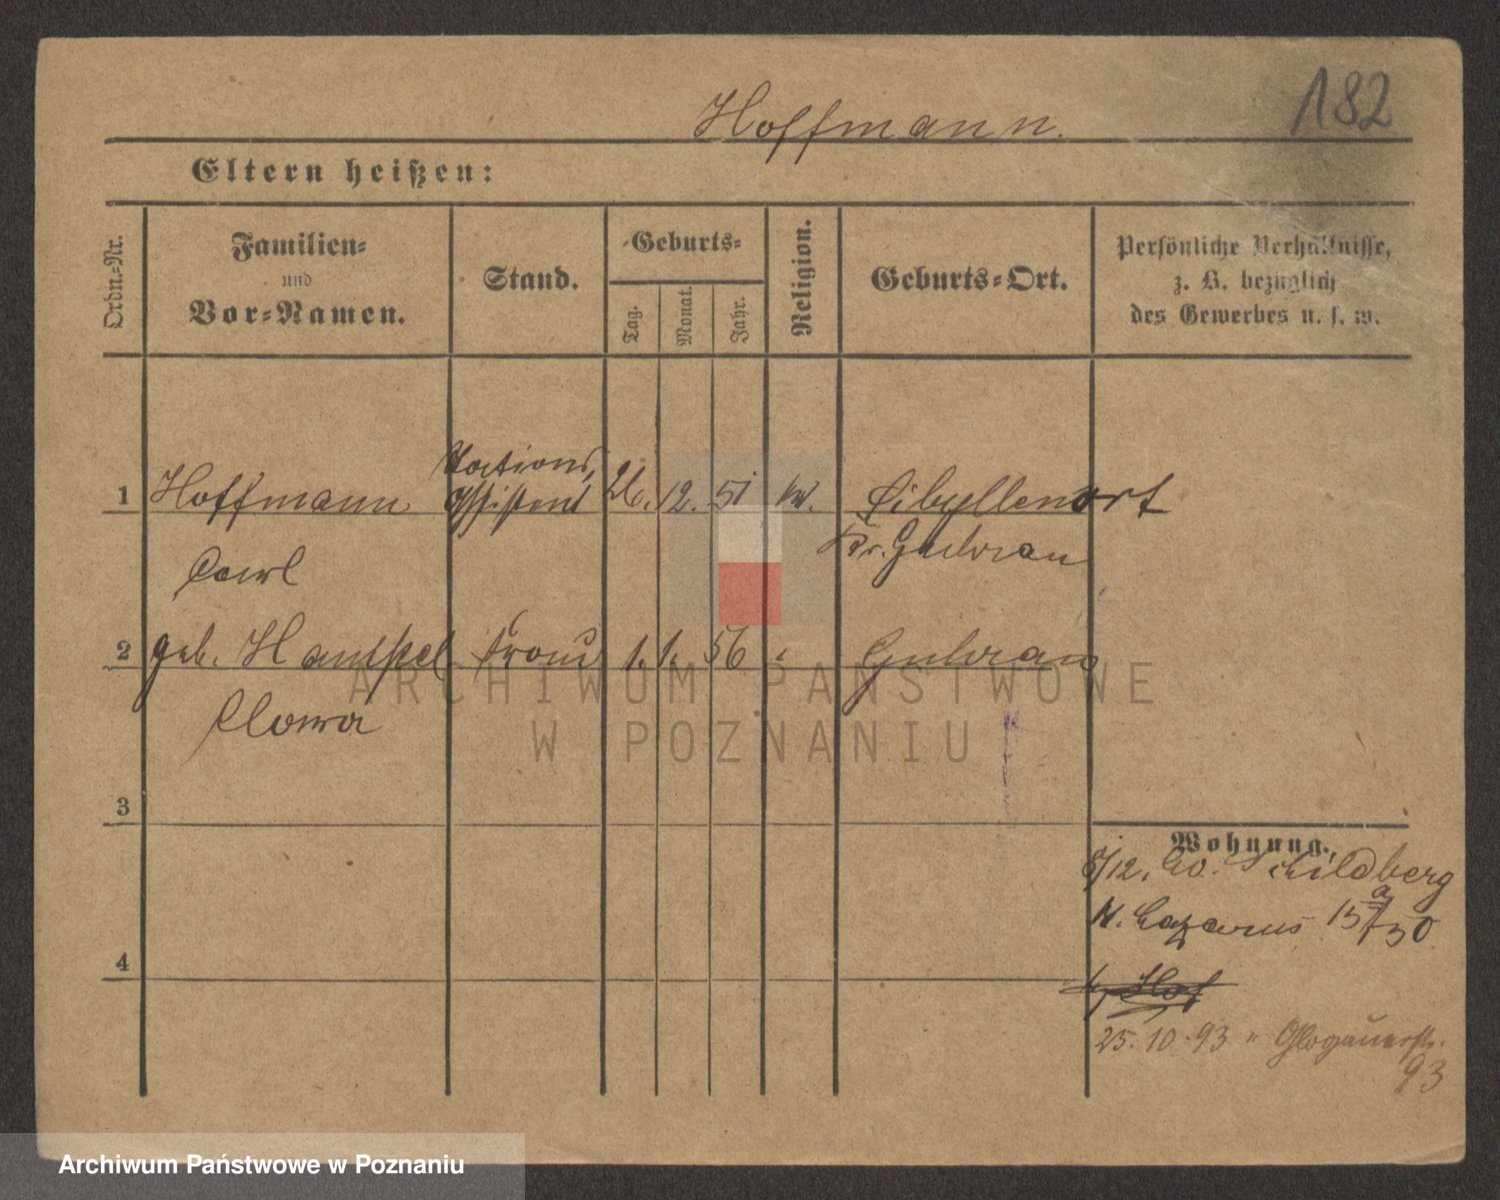 182
Hoffmann.
Eltern heißen:
Ordn.-Nr.
Familien-
und
Vor-Namen.
Stand.
Geburts-
Tag.
Monat.
Jahr.
Religion.
Geburts-Ort.
Persönliche Verhältnisse,
z. B. bezüglich
des Gewerbes u. s. w.
1 Hoffmann Stations, Assistent 26. 12. 51 Sibyllenort
Carl Kr. Guhrau
2 geb. Frau 1. 1. 56 Guhrau
Clara
3
Wohnung.
5/12. Schildberg
N. Lazarus 15a/30
4
Hof
25.10.93 " Glogauerstr.
93
ARCHIWUM PAŃSTWOWE
W POZNANIU
Archiwum Państwowe w Poznaniu